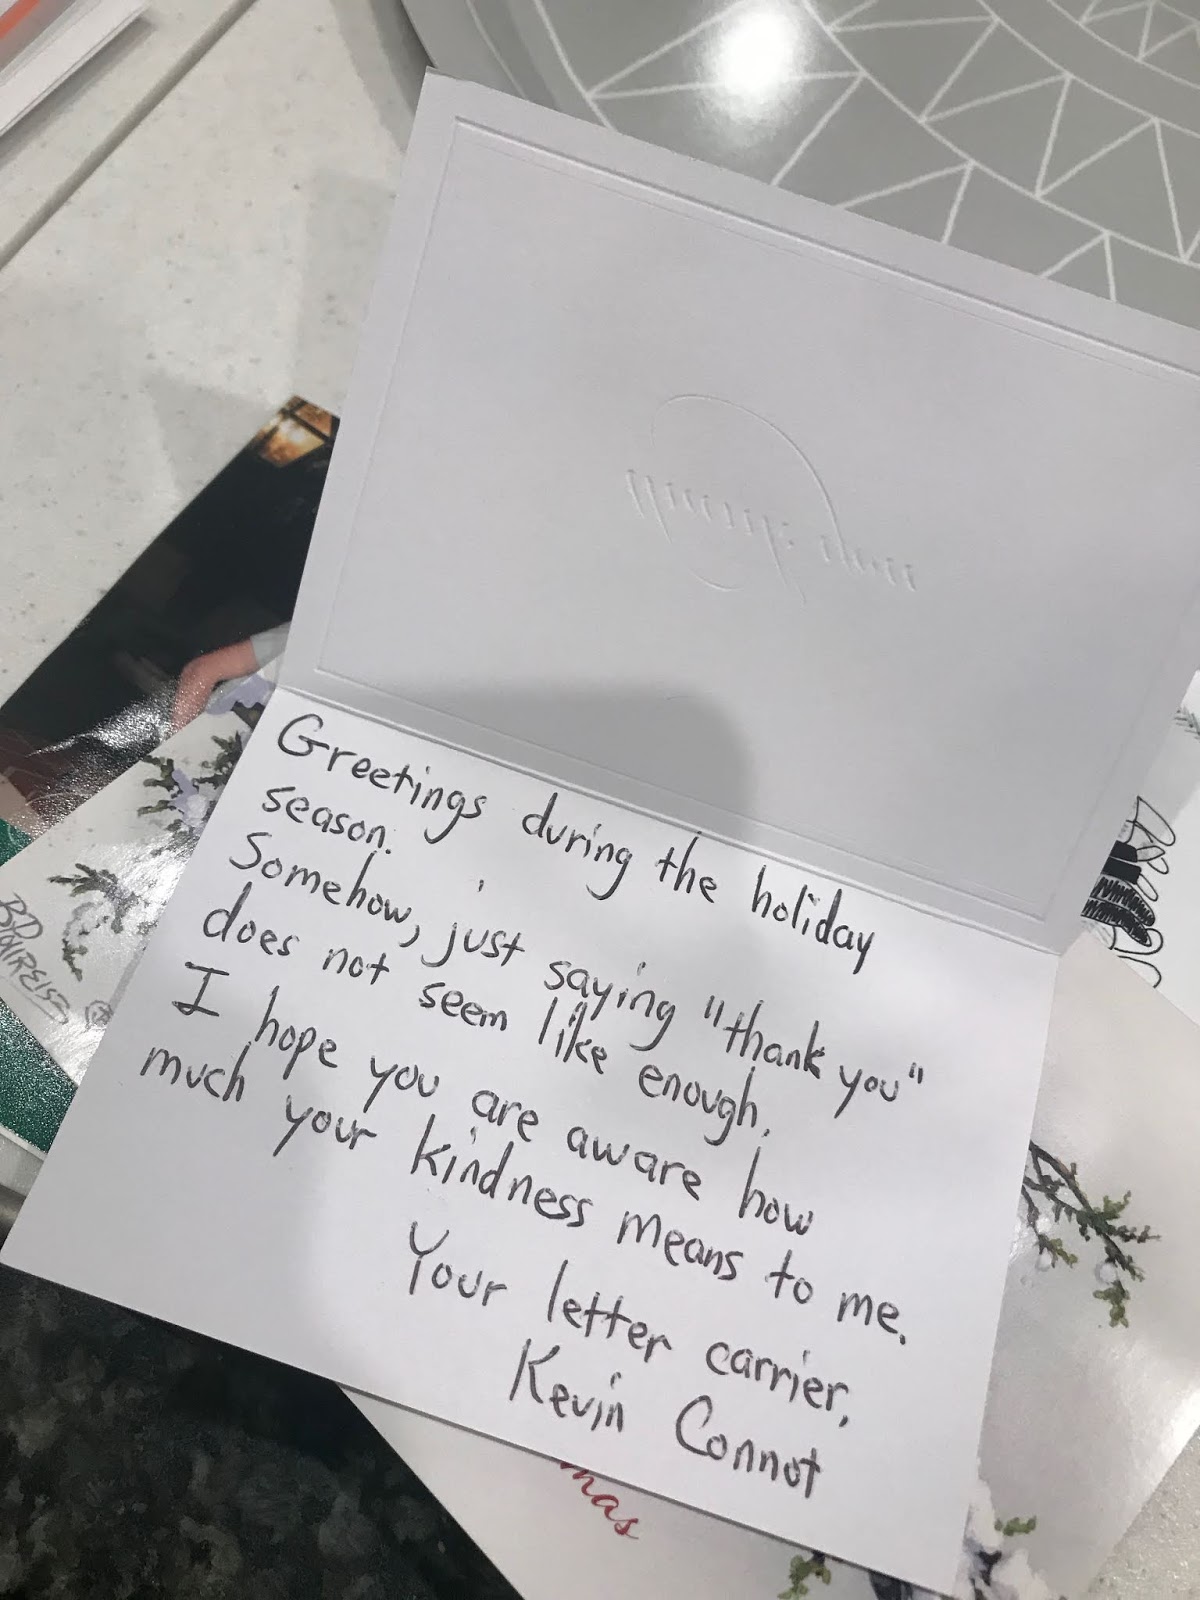 Greetings during the holiday
season.
Somehow, just saying "thank you"
does not seem like enough.
I hope you are aware how
much your kindness means to me.
Your letter carrier,
Kevin Connot
mas